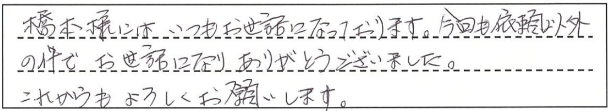 橋本様にはいつもお世話になっております。今回も依頼以外
の件でお世話になりありがとうございました。
これからもよろしくお願いします。